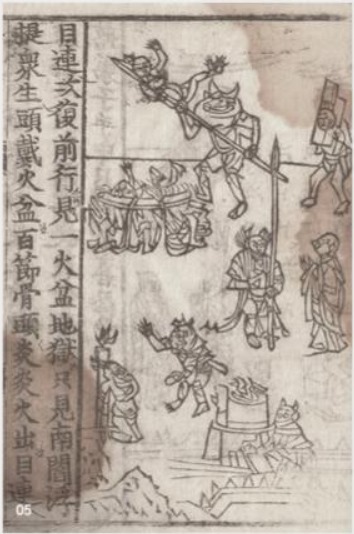 目連次復前行見一火盆地獄只見南閻浮
提衆生頭戴火盆百節骨頭炎炎火出目連
05